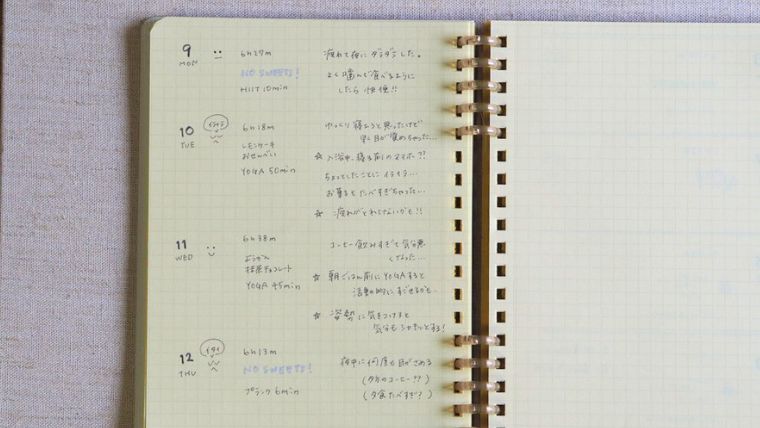 9
MON
6h27m
NO SWEETS!
HIIT 10min
疲れて夜にダラダラした。
よく噛んで食べるように
したら 快便!!
10
TUE
イライラ
6h18m
レモンケーキ
おせんべい
YOGA 50min
ゆっくり寝ようと思ったけど
早く目が覚めちゃった…
☆ 入浴中、寝る前のスマホ??
ちょっとしたことにイライラ…
お菓子をたべすぎちゃった…
☆ 疲れがとれてないかも!!
11
WED
6h38m
ようかん
抹茶チョコレート
YOGA 45min
コーヒー飲みすぎて気分悪
くなった…
☆ 朝ごはん前にYOGAすると
活動的にすごせるかも…
☆ 姿勢に気をつけると
気分もシャキッとする!
12
THU
イタイ
6h13m
NO SWEETS!
プランク 6min
夜中に何度も目がさめる
(夕方のコーヒー??)
(夕食たべすぎ?)